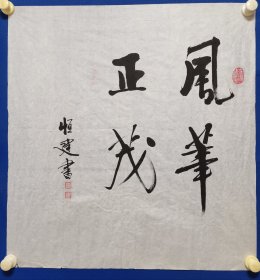 風華
正茂
恒建書